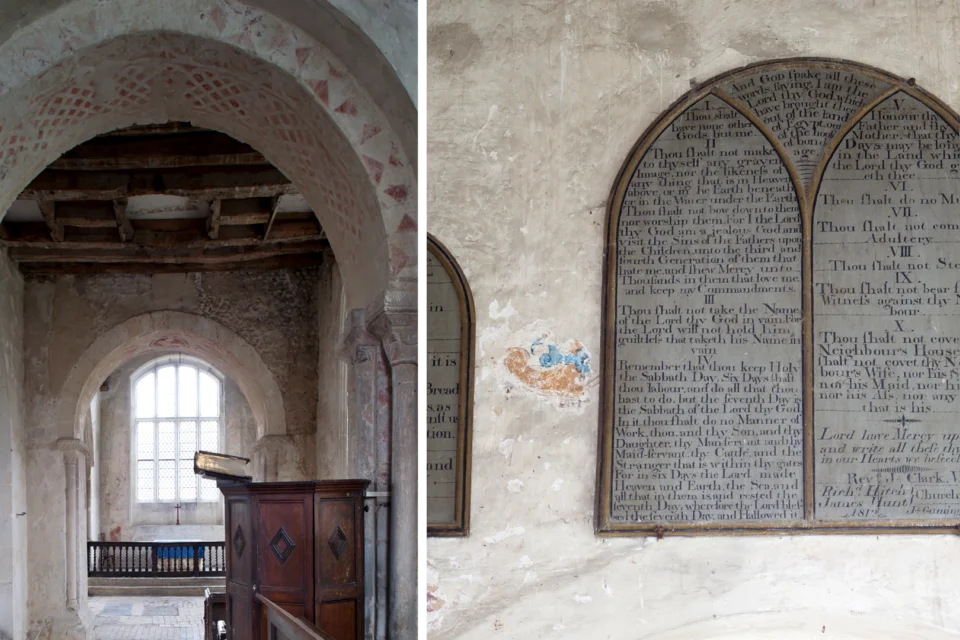 in
it is
Bread
s, as
ainst us
tion.
and
And GOD spake all these
words saying, I am the
Lord thy God which
have brought thee
out of the land
of Egypt out
of the house
of bondage.
I
Thou shalt
have none other
Gods but me.
II
Thou shalt not make
to thyself any graven
Image, nor the likeness of
any thing that is in Heaven
above, or in the Earth beneath
or in the Water under the Earth
Thou shalt not bow down to them
nor worship them. For I the Lord
thy God am a jealous God, and
visit the Sins of the Fathers upon
the Children, unto the third and
fourth Generation of them that
hate me, and shew Mercy unto
Thousands in them that love me
and keep my Commandments.
III
Thou shalt not take the Name
of the Lord thy God in vain. For
the Lord will not hold him
guiltless that taketh his Name in
vain.
IV
Remember that thou keep Holy
the Sabbath Day. Six Days shalt
thou labour, and do all that thou
hast to do, but the seventh Day is
the Sabbath of the Lord thy God.
In it thou shalt do no Manner of
Work, thou, and thy Son, and thy
Daughter, thy Man-servant and thy
Maid-servant, thy Cattle, and the
Stranger that is within thy gates
For in six Days the Lord made
Heaven and Earth, the Sea, and
all that in them is, and rested the
seventh Day, wherefore the Lord bles-
sed the seventh Day, and Hallowed it
V.
Honour thy
Father and thy
Mother, that thy
Days may be long
in the Land which
the Lord thy God g
eth thee
VI.
Thou shalt do no Mu
VII.
Thou shalt not com
Adultery
VIII.
Thou shalt not Ste
IX.
Thou shalt not bear f
Witness against thy N
bour.
X.
Thou shalt not cove
Neighbour's House
shalt not covet thy N
bour's Wife, nor his S
nor his Maid, nor his
nor his Ass, nor any
that is his
Lord have Mercy up
and write all these thy
in our Hearts we beseech
Revd. J. Clark, V
Richd. Hitch
James Hunt
Church
1812